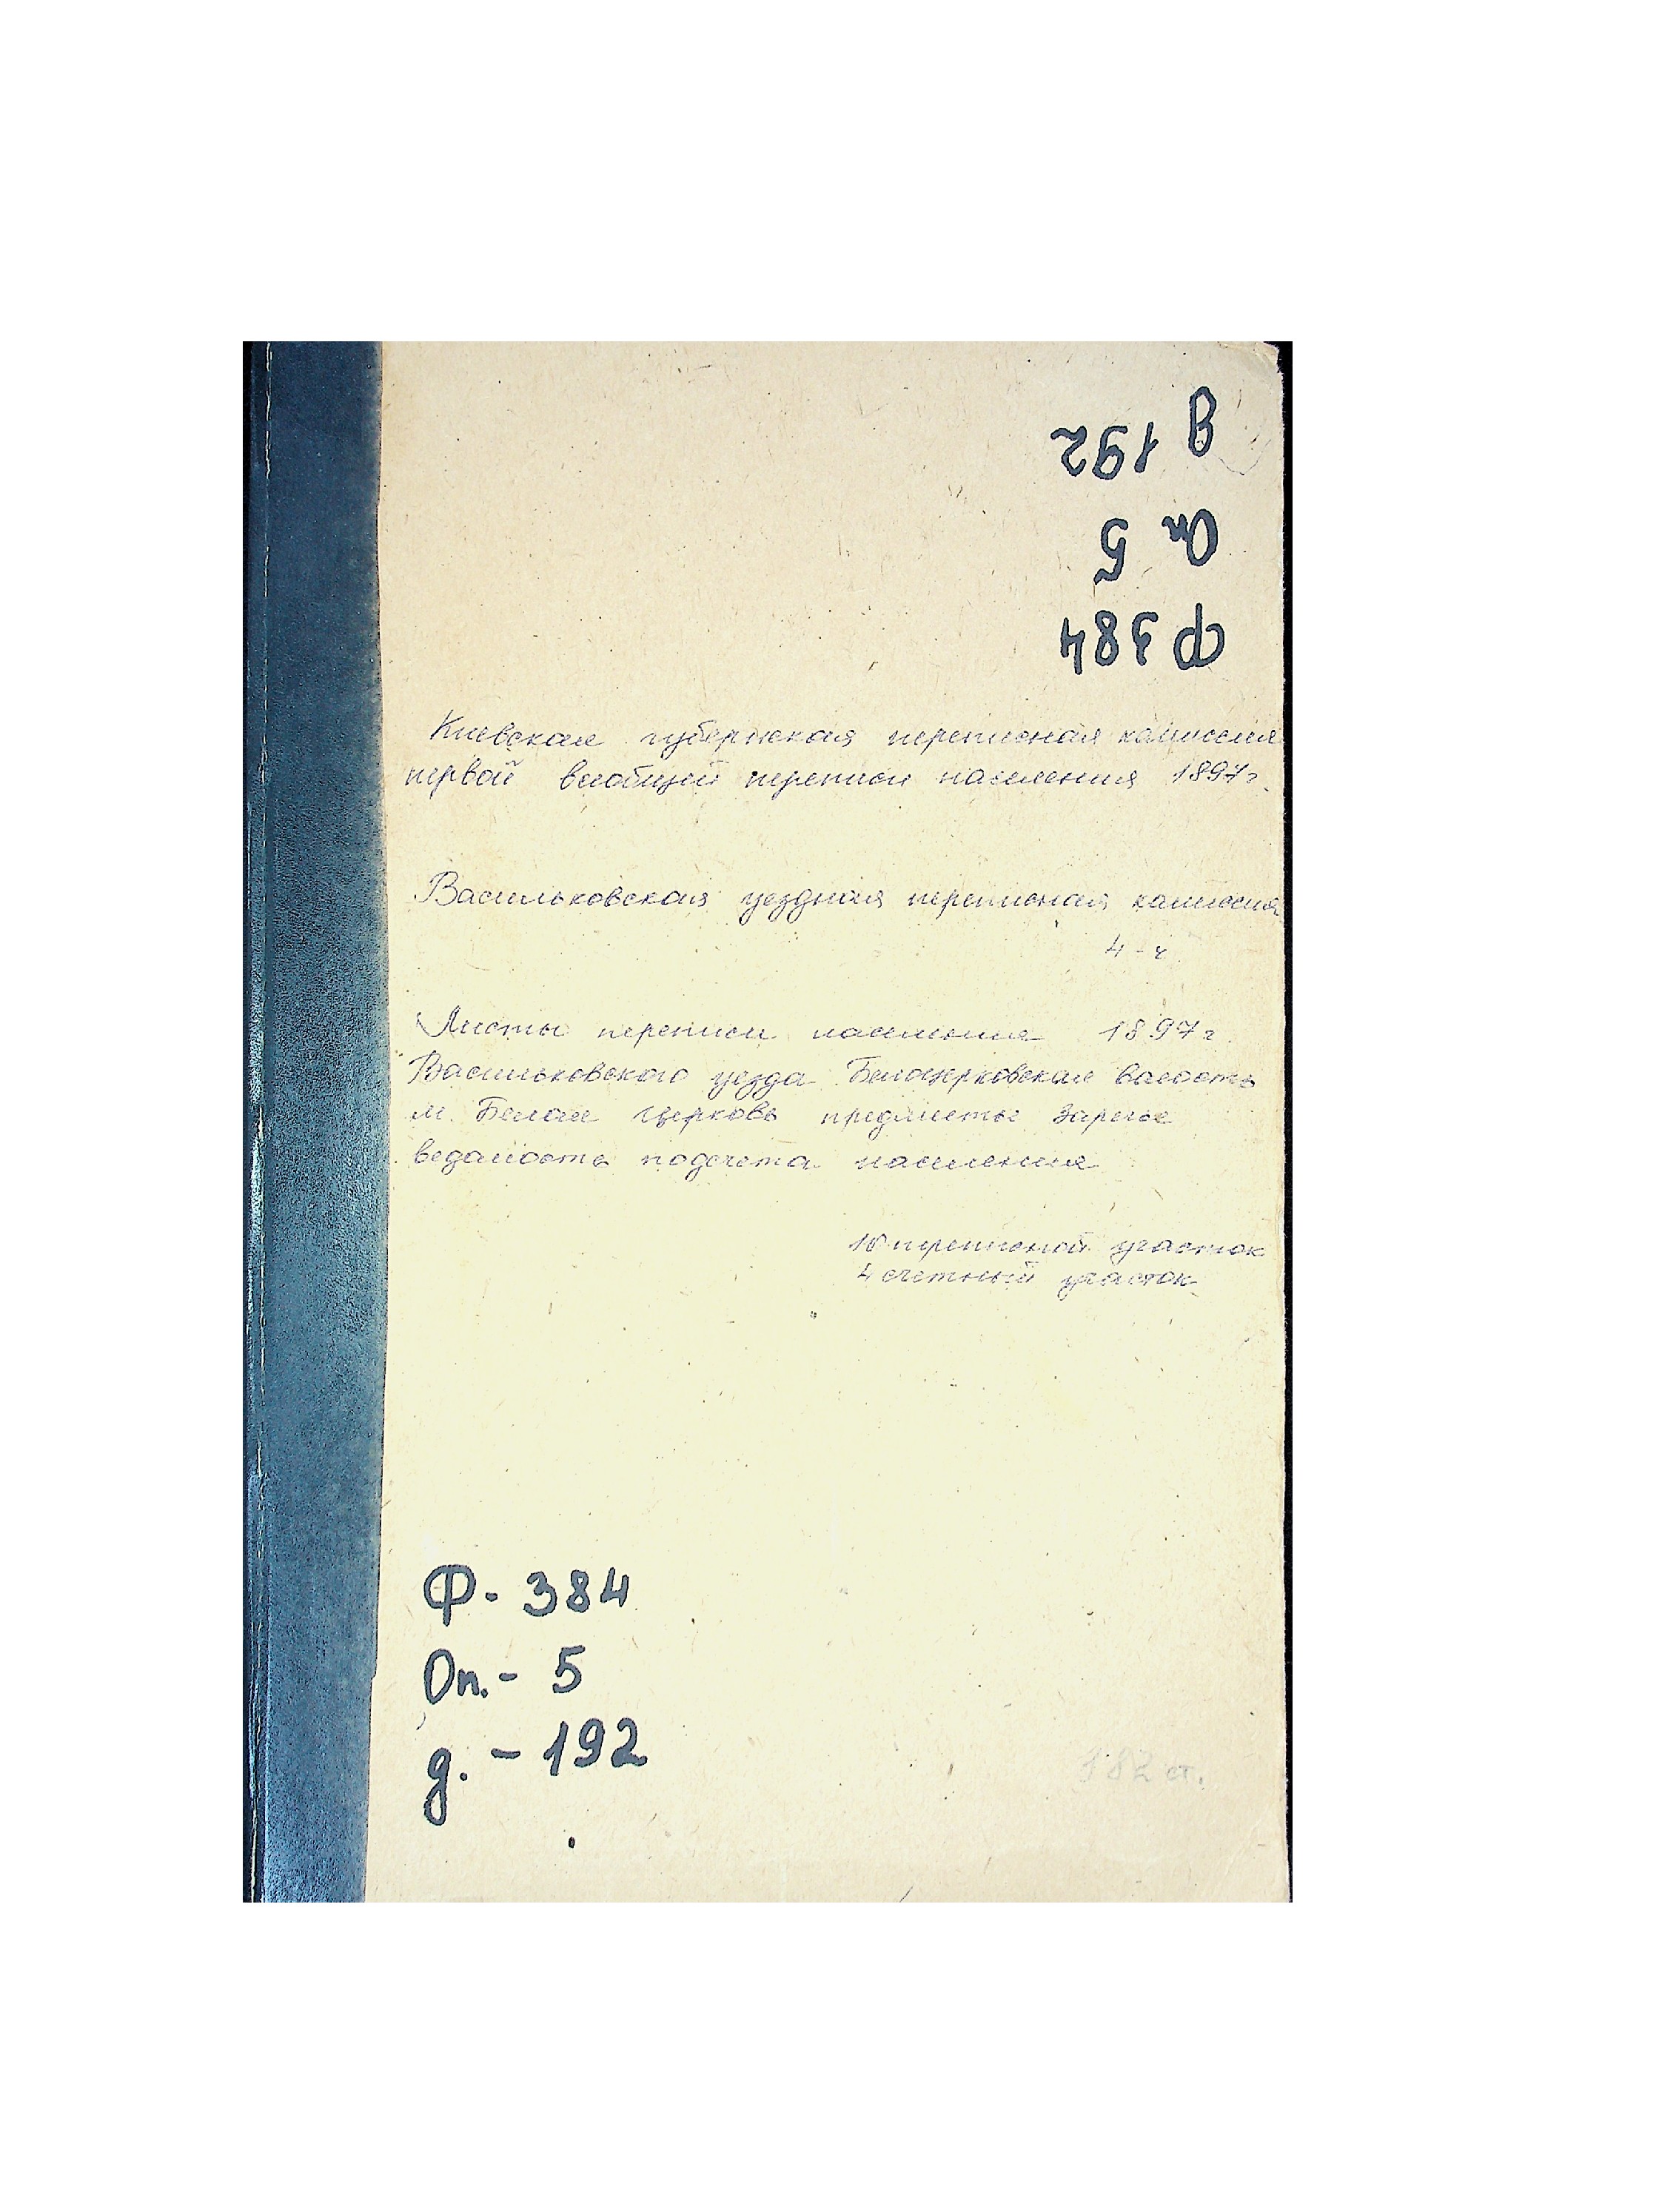 д 192
Оп 5
Ф 384
Киевская губернская переписная комиссия
первой всеобщей переписи населения 1897г.
Васильковская уездная переписная комиссия
4-
Листы переписи населения 1897г.
Васильковского уезда Белоцерковская волость
м. Белая Церковь предместье Заречье
ведомость подсчета населения
10 переписной участок
4 счетный участок
Ф. 384
Оп. - 5
д. - 192
ст.